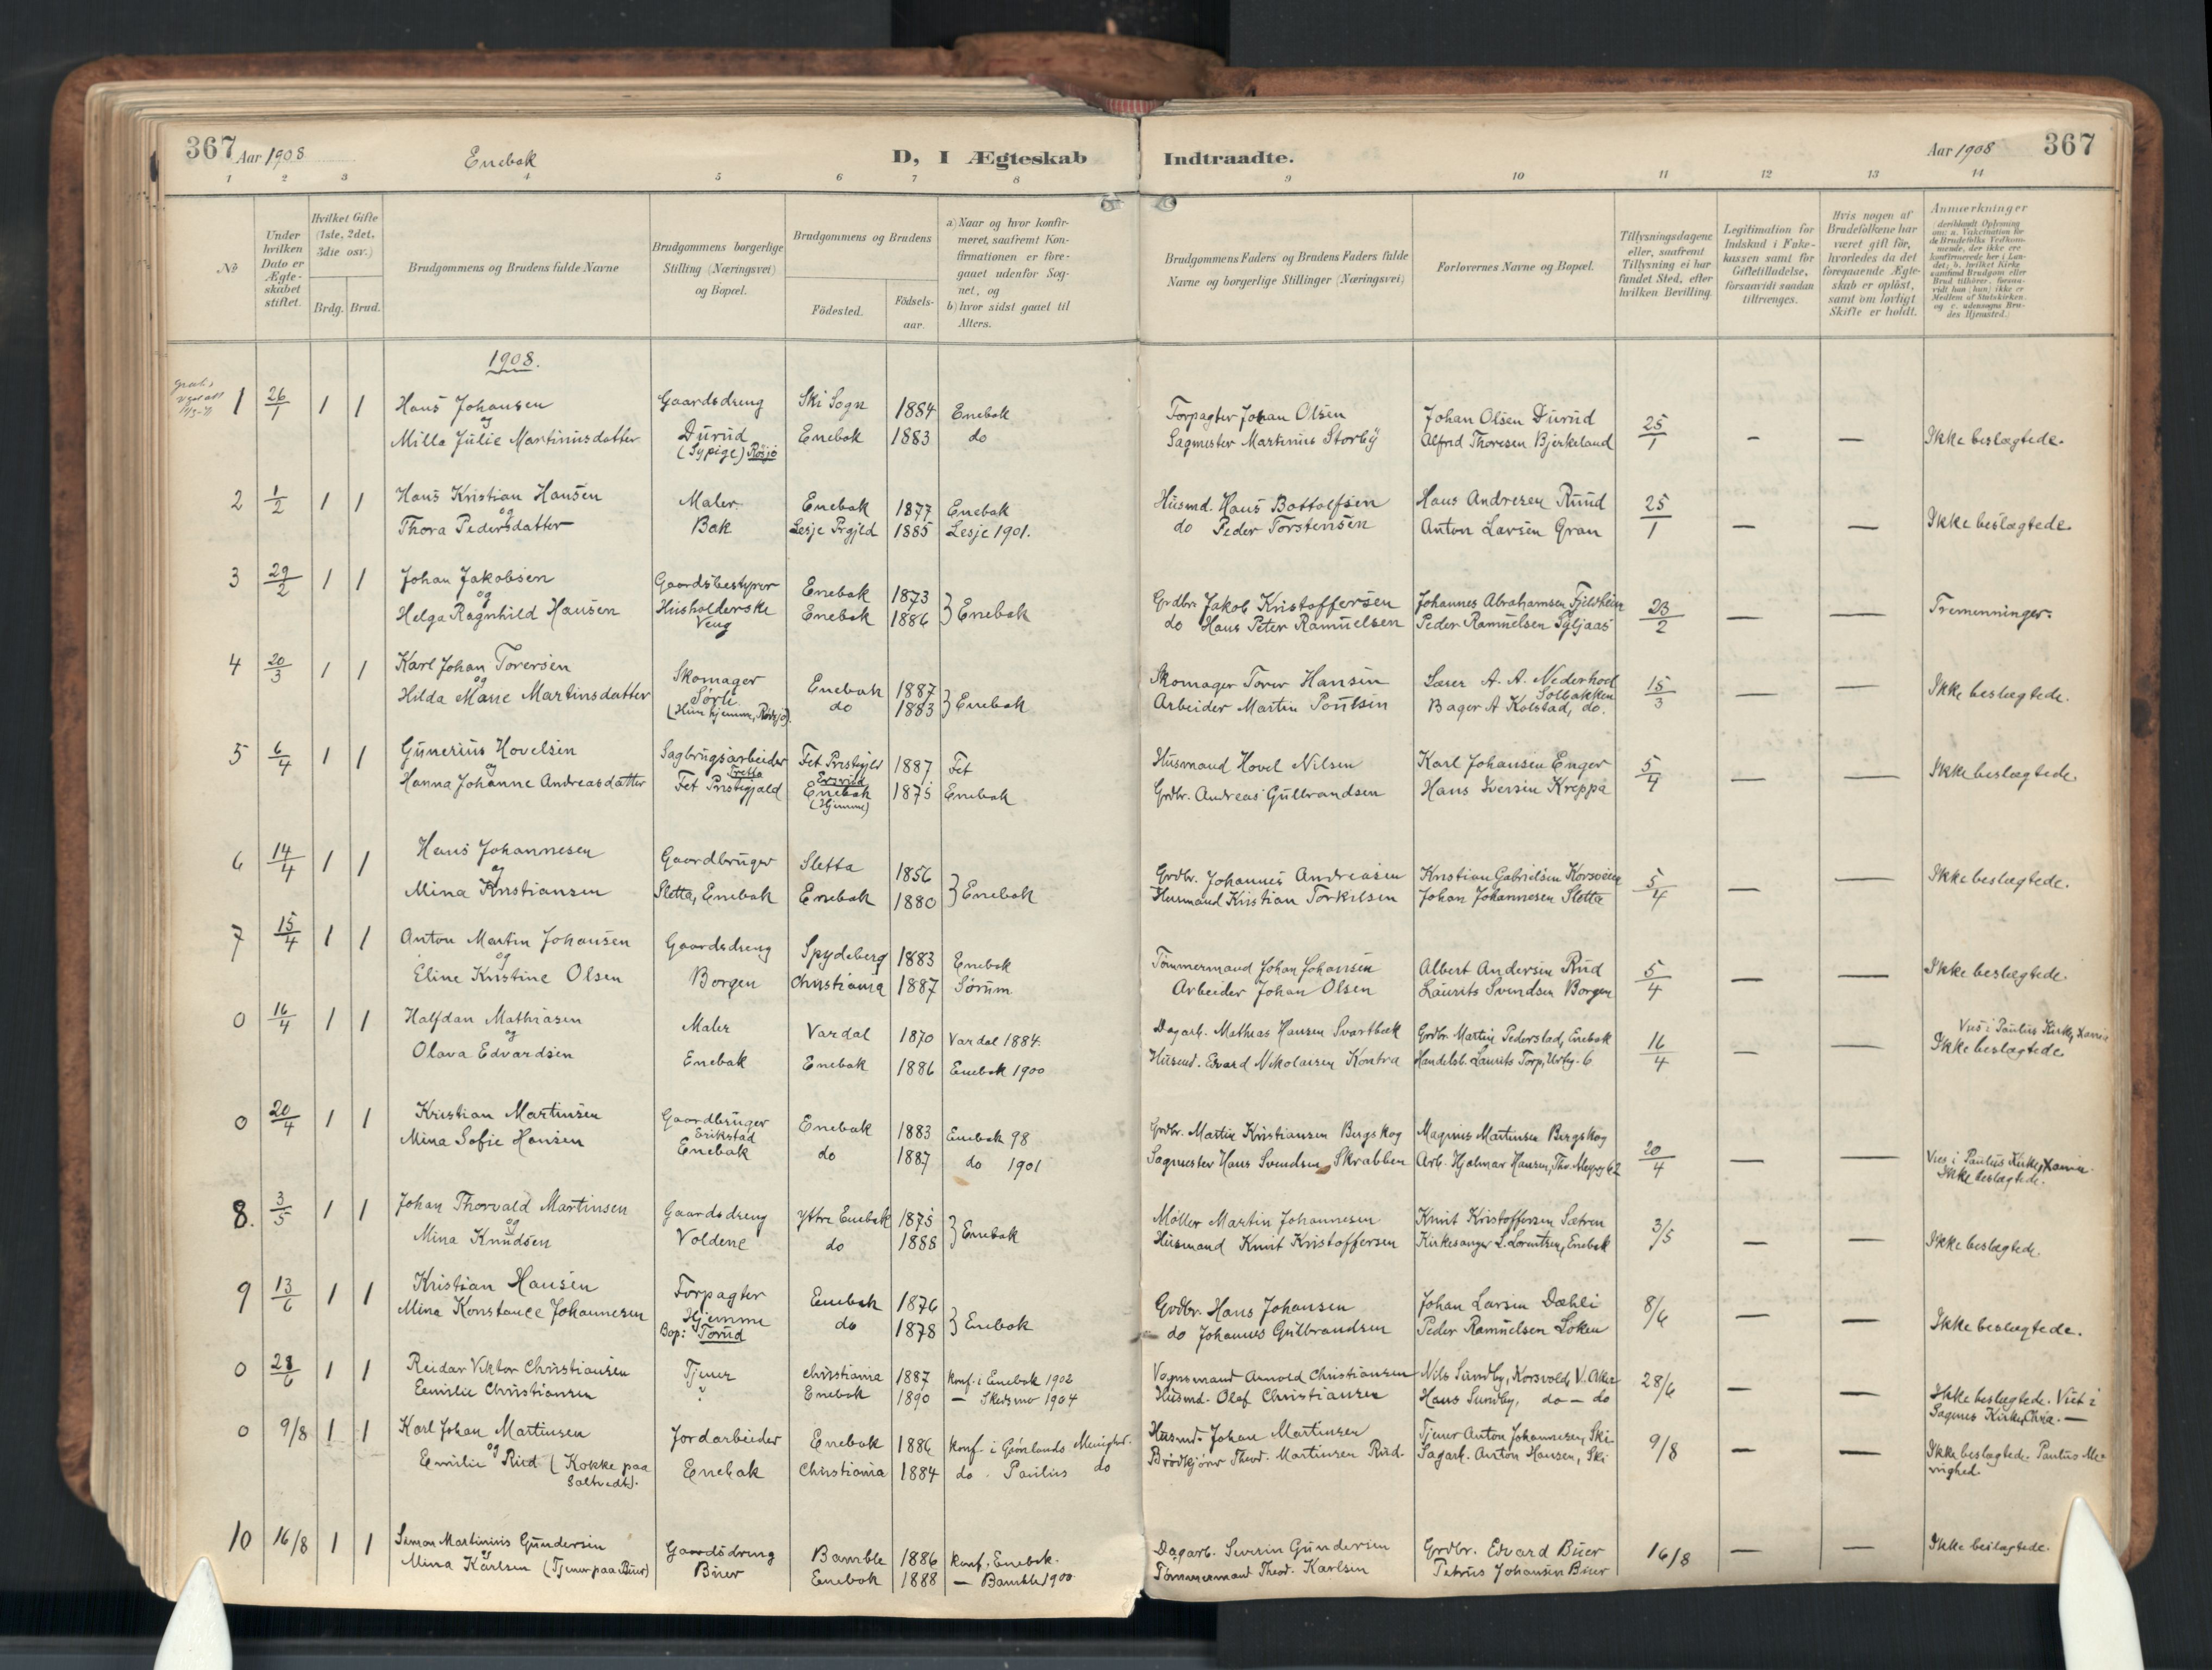 367 Aar 1908
Enebak
D, I Ægteskab
Indtraadte.
Aar 1908 367
1 2 3 4 5 6 7 8 9 10 11 12 13 14
No
Under hvilken Dato er Ægteskabet stiftet.
Hvilket Gifte (1ste, 2det, 3die osv.)
Brdg. Brud.
Brudgommens og Brudens fulde Navne
Brudgommens borgerlige Stilling (Næringsvei) og Bopæl.
Brudgommens og Brudens
Fødested.
Fødsels-aar.
a) Naar og hvor konfirmeret, saafremt Konfirmationen er foregaaet udenfor Sognet, og
b) hvor sidst gaaet til Alters.
Brudgommens Faders og Brudens Faders fulde Navne og borgerlige Stillinger (Næringsvei)
Forlovernes Navne og Bopæl.
Tillysningsdagene eller, saafremt Tillysning ei har fundet Sted, efter hvilken Bevilling.
Legitimation for Indskud i Enkekassen samt for Giftetilladelse, forsaavidt saadan tiltrænges.
Hvis nogen af Brudefolkene har været gift før, hvorledes da det foregaaende Ægteskab er opløst, samt om lovligt Skifte er holdt.
Anmærkninger
(deriblandt Oplysning om: a. Vakcination for de Brudefolks Vedkommende, der ikke ere konfirmerede her i Landet; b. hvilket Kirkesamfund Brudgom eller Brud tilhører, forsaavidt han (hun) ikke er Medlem af Statskirken og c. udensogns Brudes Hjemsted.)
1908.
1 26/1 1 1 Hans Johansen Gaardsdreng Ski Sogn 1884 Enebak Forpagter Johan Olsen Johan Olsen Durud 25/1 - — Ikke beslægtede.
og
Milla Julie Martinusdatter Durud Enebak 1883 do Sagmester Martinius Storby Alfred Thoresen Bjerkeland
(Sypige) Røsjø
2 1/2 1 1 Hans Kristian Hansen Maler Enebak 1877 Enebak Husmd. Hans Bottolfsen Hans Andresen Ruud 25/1 — — Ikke beslægtede.
og
Thora Pedersdatter Bak Lesje Prgjld 1885 Lesje 1901. do Peder Torstensen Anton Larsen Gran
3 29/2 1 1 Johan Jakobsen Gaardsbestyrer Enebak 1873 } Enebak Grdbr. Jakob Kristoffersen Johannes Abrahamsen Fjeldheim 23/2 — — Tremenninger.
og
Helga Ragnhild Hansen Husholderske Enebak 1886 do Hans Peter Ramuelsen Peder Rammelsen Syljaas
Veng
4 20/3 1 1 Karl Johan Torersen Skomager Enebak 1887 } Enebak Skomager Torer Hansen Lærer A. A. Nederhoel 15/3 — — Ikke beslægtede.
og
Hilda Marie Martinsdatter Sørli do 1883 Arbeider Martin Poulsen Solbakken
Bager A Kolstad, do.
5 6/4 1 1 Gunerius Hovelsen Sagbrugsarbeider Fet Prestgjld 1887 Fet Husmand Hovel Nilsen Karl Johansen Enger 5/4 — — Ikke beslægtede.
og
Hanna Johanne Andreasdatter Fet Prestegjæld Enebak 1875 Enebak Grdbr. Andreas Gulbrandsen Hans Iversen Kreppa
(Hjemme)
6 14/4 1 1 Hans Johannesen Gaardbruger Sletta 1856 } Enebak Grdbr. Johannes Andreasen Kristian Gabrielsen Korsveien 5/4 — — Ikke beslægtede.
og
Mina Kristiansen Sletta, Enebak Enebak 1880 Husmand Kristian Torkilsen Johan Johannesen Sletta
7 15/4 1 1 Anton Martin Johansen Gaardsdreng Spydeberg 1883 Enebak Tømmermand Johan Johansen Albert Andersen Rud 5/4 — — Ikke beslægtede.
og
Eline Kristine Olsen Borgen Christiania 1887 Sørum Arbeider Johan Olsen Laurits Svendsen Borgen
0 16/4 1 1 Halfdan Mathiasen Maler Vardal 1870 Vardal 1884. Dagarb. Mathias Hansen Svartbæk Grdbr. Martin Pederstad, Enebak 16/4 — — Viet i Paulus Kirke, Xania
og
Olava Edvardsen Enebak Enebak 1886 Enebak 1900 Husmd. Edvard Nikolaisen Kontra Handelsb. Laurits Torp, Urbg. 6 Ikke beslægtede
0 20/4 1 1 Kristian Martinsen Gaardbruger Enebak 1883 Enebak 98 Grdbr. Martin Kristiansen Bergskog Magnus Martinsen Bergskog 20/4 — — Viet i Paulus Kirke, Xania.
Erikstad
Mina Sofie Hansen Enebak do 1887 do 1901 Sagmester Hans Svendsen Skrabben Arb. Hjalmar Hansen, Thv. Meyersg 62 Ikke beslægtede.
8. 3/5 1 1 Johan Thorvald Martinsen Gaardsdreng Ytre Enebak 1875 } Enebak Møller Martin Johannesen Knut Kristoffersen Sætren 3/5 — — Ikke beslægtede.
og
Mina Knudsen Voldene do 1888 Husmand Knut Kristoffersen Kirkesanger L. Lorentzen, Enebak
9 13/6 1 1 Kristian Hansen Forpagter Enebak 1876 } Enebak Grdbr. Hans Johansen Johan Larsen Dæhli 8/6 — — Ikke beslægtede.
Mina Konstance Johannesen Hjemme do 1878 do Johannes Gulbrandsen Peder Ramuelsen Løken
Bop: Torud
0 28/6 1 1 Reidar Viktor Christiansen Tjener Christiania 1887 konf. i Enebak 1902 Vognmand Arnold Christiansen Nils Sundby, Korsvold, V. Aker 28/6 — — Ikke beslægtede. Viet i
Emilie Christiansen Enebak 1890 — Skedsmo 1904 Husmd. Olaf Christiansen Hans Sundby, do — do Sagenes Kirke, Chra. —
0 9/8 1 1 Karl Johan Martinsen Jordarbeider Enebak 1886 konf. i Grønlands Menighed. Husmd. Johan Martinsen Tjener Anton Johannesen, Ski 9/8 — — Ikke beslægtede. Paulus Me-
og
Emilie Rud (Kokke paa Enebak Christiania 1884 do. Paulus do Brødkjører Theod. Martinsen Rud. Sagarb. Anton Hansen, Ski nighed.
Saltvedt).
10 16/8 1 1 Simon Martinius Gundersen Gaardsdreng Bamble 1886 konf. Enebak. Dagarb. Severin Gundersen Grdbr. Edvard Buer 16/8 — — Ikke beslægtede.
og
Mina Karlsen (Tjener paa Buer) Buer Enebak 1888 — Bamble 1900 Tømmermand Theod. Karlsen Petrus Johansen Buer